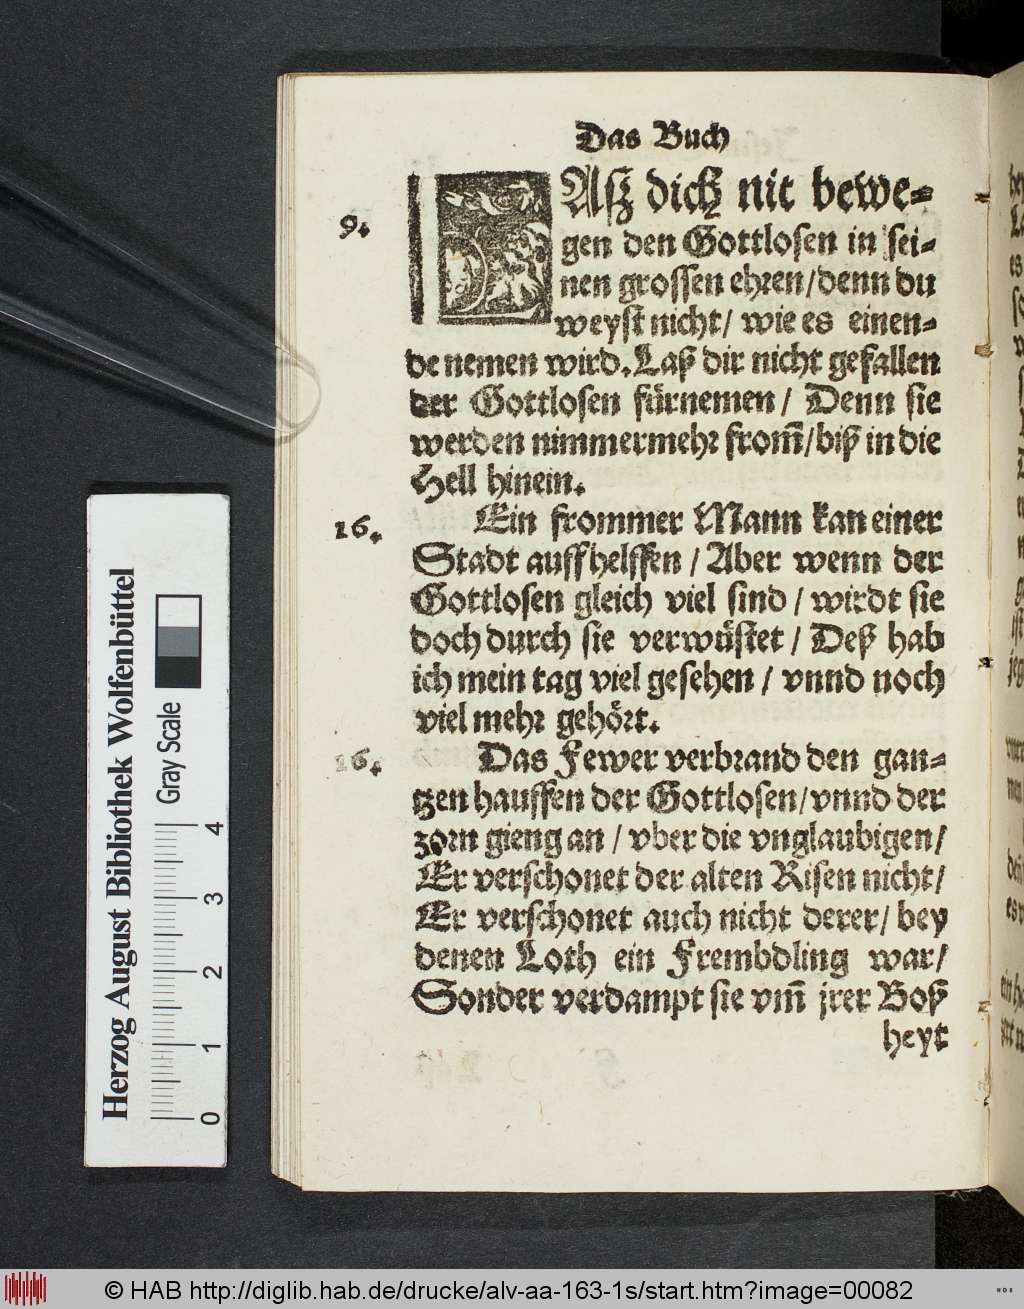 Das Buch
9.
LAſz dich nit bewe-
gen den Gottloſen in ſei-
nen groſſen ehren/denn du
weyſt nicht/ wie es einen-
de nemen wird. Laß dir nicht gefallen
der Gottloſen fürnemen/ Denn ſie
werden nimmermehr from̃/biß in die
Hell hinein.
16. Ein frommer Mann kan einer
Stadt auffhelffen/Aber wenn der
Gottloſen gleich viel ſind/wirdt ſie
doch durch ſie verwüſtet/ Deß hab
ich mein tag viel geſehen/ vnnd noch
viel mehr gehört.
16. Das Fewer verbrand den gan-
tzen hauffen der Gottloſen/vnnd der
zorn gieng an/ vber die vnglaubigen/
Er verſchonet der alten Riſen nicht/
Er verſchonet auch nicht derer/ bey
denen Loth ein Frembdling war/
Sonder verdampt ſie vm̃ jrer Boß
heyt
Herzog August Bibliothek Wolfenbüttel
Gray Scale
0 1 2 3 4
© HAB http://diglib.hab.de/drucke/alv-aa-163-1s/start.htm?image=00082